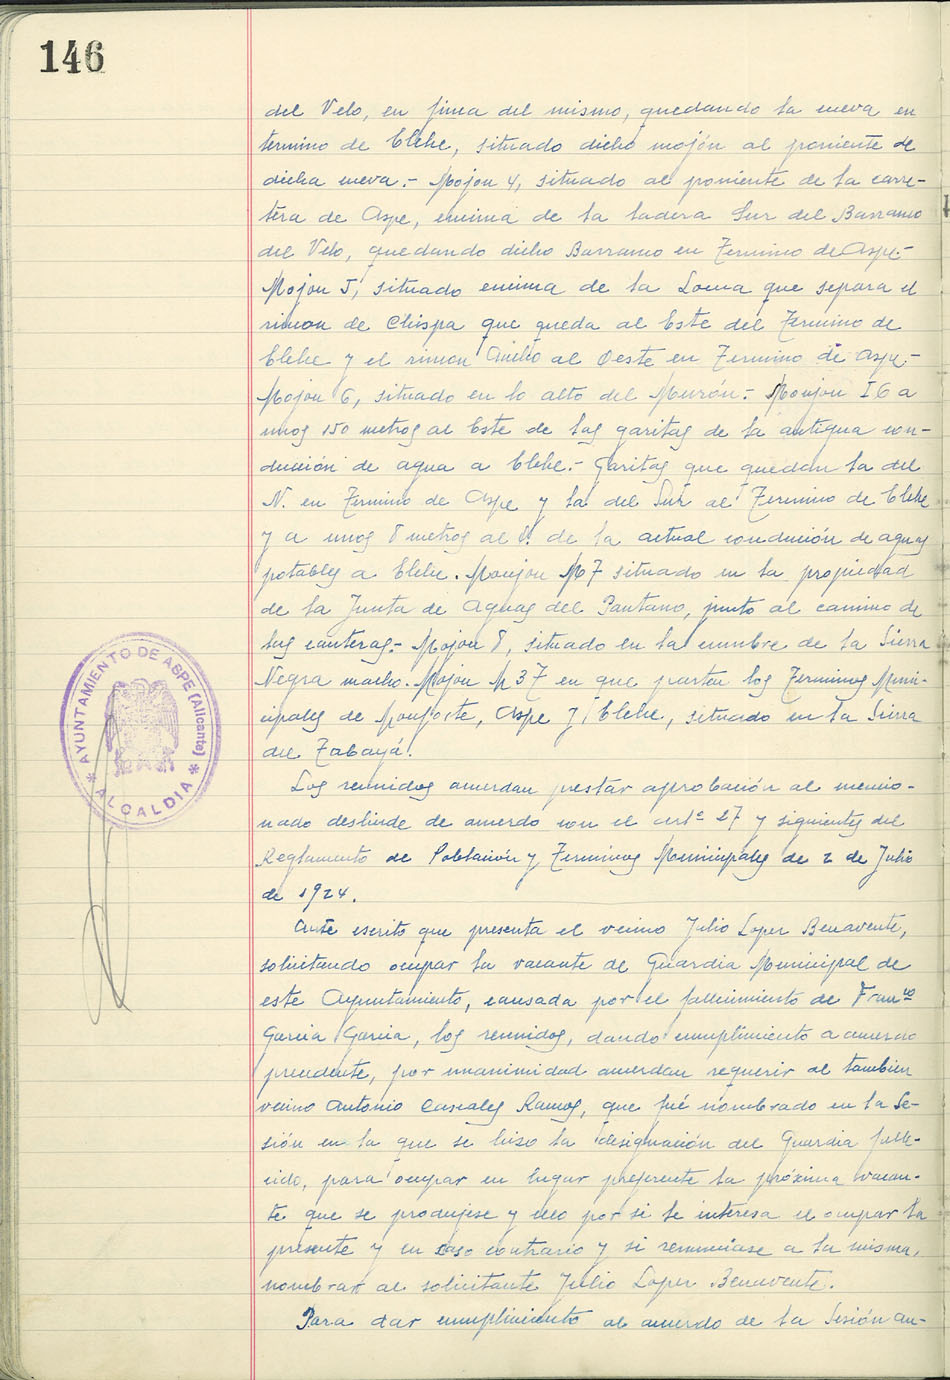 146
del Velo, en finca del mismo, quedando la cueva en
termino de Elche, situado dicho mojón al poniente de
dicha cueva.- Mojon 4, situado al poniente de la carre-
tera de Aspe, encima de la ladera Sur del Barranco
del Velo, quedando dicho Barranco en Termino de Aspe.-
Mojon 5, situado encima de la Loma que separa el
rincon de Chispa que queda al Este del Termino de
Elche y el rincon Ancho al Oeste en Termino de Aspe.-
Mojon 6, situado en lo alto del Murón.- Monjon I6 a
unos 150 metros al Este de las garitas de la antigua con-
ducción de agua a Elche.- Garitas que quedan la del
N. en Termino de Aspe y la del Sur al Termino de Elche
y a unos 8 metros al de la actual conducción de aguas
potables a Elche. Monjon M7 situado en la propiedad
de la Junta de Aguas del Pantano, junto al camino de
las canteras.- Mojon 8, situado en la cumbre de la Sierra
Negra macho. Mojon M37 en que parten los Terminos Muni-
cipales de Monforte, Aspe y Elche, situado en la Sierra
del Tabayá.
Los reunidos acuerdan prestar aprobación al mencio-
nado deslinde de acuerdo con el artº 27 y siguientes del
Reglamento de Población y Terminos Municipales de 2 de Julio
de 1924.
Ante escrito que presenta el vecino Julio Loper Benavente,
solicitando ocupar la vacante de Guardia Municipal de
este Ayuntamiento, causada por el fallecimiento de Franco
Garcia Garcia, los reunidos, dando cumplimiento a acuerdo
precedente, por unanimidad acuerdan requerir al tambien
vecino Antonio Cascales Ramos, que fué nombrado en la Se-
sión en la que se hiso la designación del Guardia falle-
cido, para ocupar en lugar preferente la próxima vacan-
te que se produjese y ello por si le interesa el ocupar la
presente y en caso contrario y si renunciase a la misma,
nombrar al solicitante Julio Loper Benavente.
Para dar cumplimiento al acuerdo de la Sesión an-
AYUNTAMIENTO DE ASPE (Alicante)
* ALCALDIA *